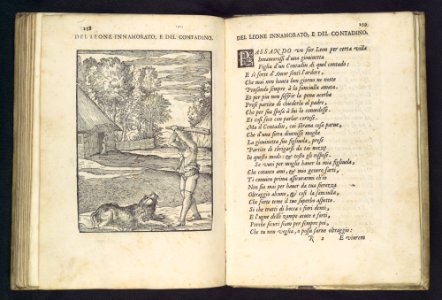 258
DEL LEONE INNAMORATO, E DEL CONTADINO.
259
DEL LEONE INNAMORATO, E DEL CONTADINO.
PASSANDO un fier Leon per certa villa
Innamorossi d'una giovinetta
Figlia d'un Contadin di quel contado:
E sì forte d'Amor sentì l'ardore,
Che mai non havea ben giorno ne notte
Pensando sempre à la fanciulla amata.
Et per più non soffrir la pena acerba
Prese partito di chiederla al padre,
Che per sua sposa à lui la concedesse.
Et così feco con parlar cortese.
Ma il Contadin, cui strana cosa parue,
Ch'ad una fiera divenisse moglie
La giovinetta sua figliuola, prese
Partito di sbrigarsi da tal
In questo modo; & così gli rispose.
Se vuoi per moglie haver la mia figliuola,
Che cotanto ami, & mio genero farti,
Ti conuien prima assicurarmi ch'io
Non sia mai per hauer da tua fierezza
Oltraggio alcuno, & così la fanciulla,
Che forte teme il tuo superbo aspetto.
Si che tratti di bocca i fieri denti,
E l'ugne de le zampe acute e forti,
Perche sicuri siam per sempre poi,
Che tu non voglia, o possa farne oltraggio:
R 2 E viverti